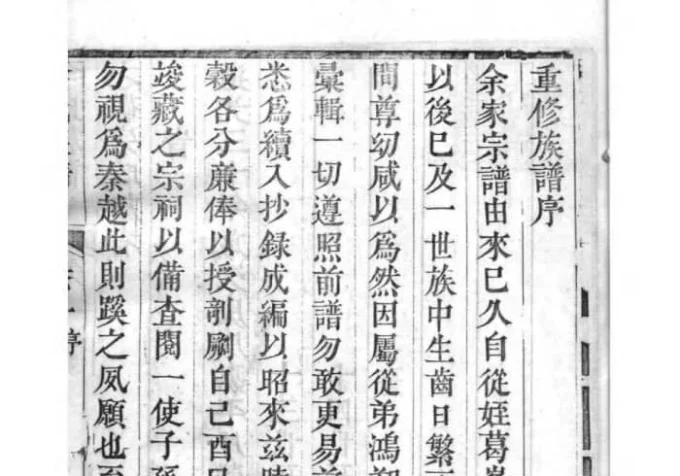 重修族譜序
余家宗譜由來已久自從姪葛
以後已及一世族中生齒日繁
間尊幼咸以爲然因屬從弟鴻
彙輯一切遵照前譜勿敢更易
悉爲續入抄錄成編以昭來茲
穀各分廉俸以授剞劂自己酉
竣藏之宗祠以備查閱一使子
勿視爲秦越此則蹊之夙願也至
序